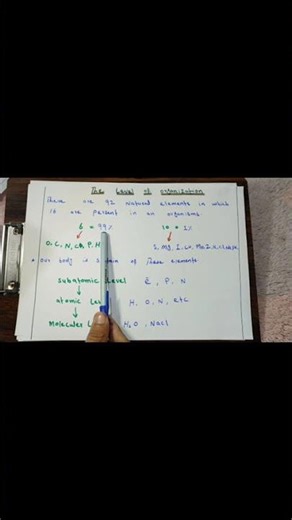 The Level of organization
There are 92 Natural elements in which
16 are present in an organisms.
6 = 99% 10 = 1%
O, C, N, Ca, P, H
* Our body is made of these elements
Subatomic Level e, P, N
atomic Le H, O, N, etc
Molecules L H2O, Nacl